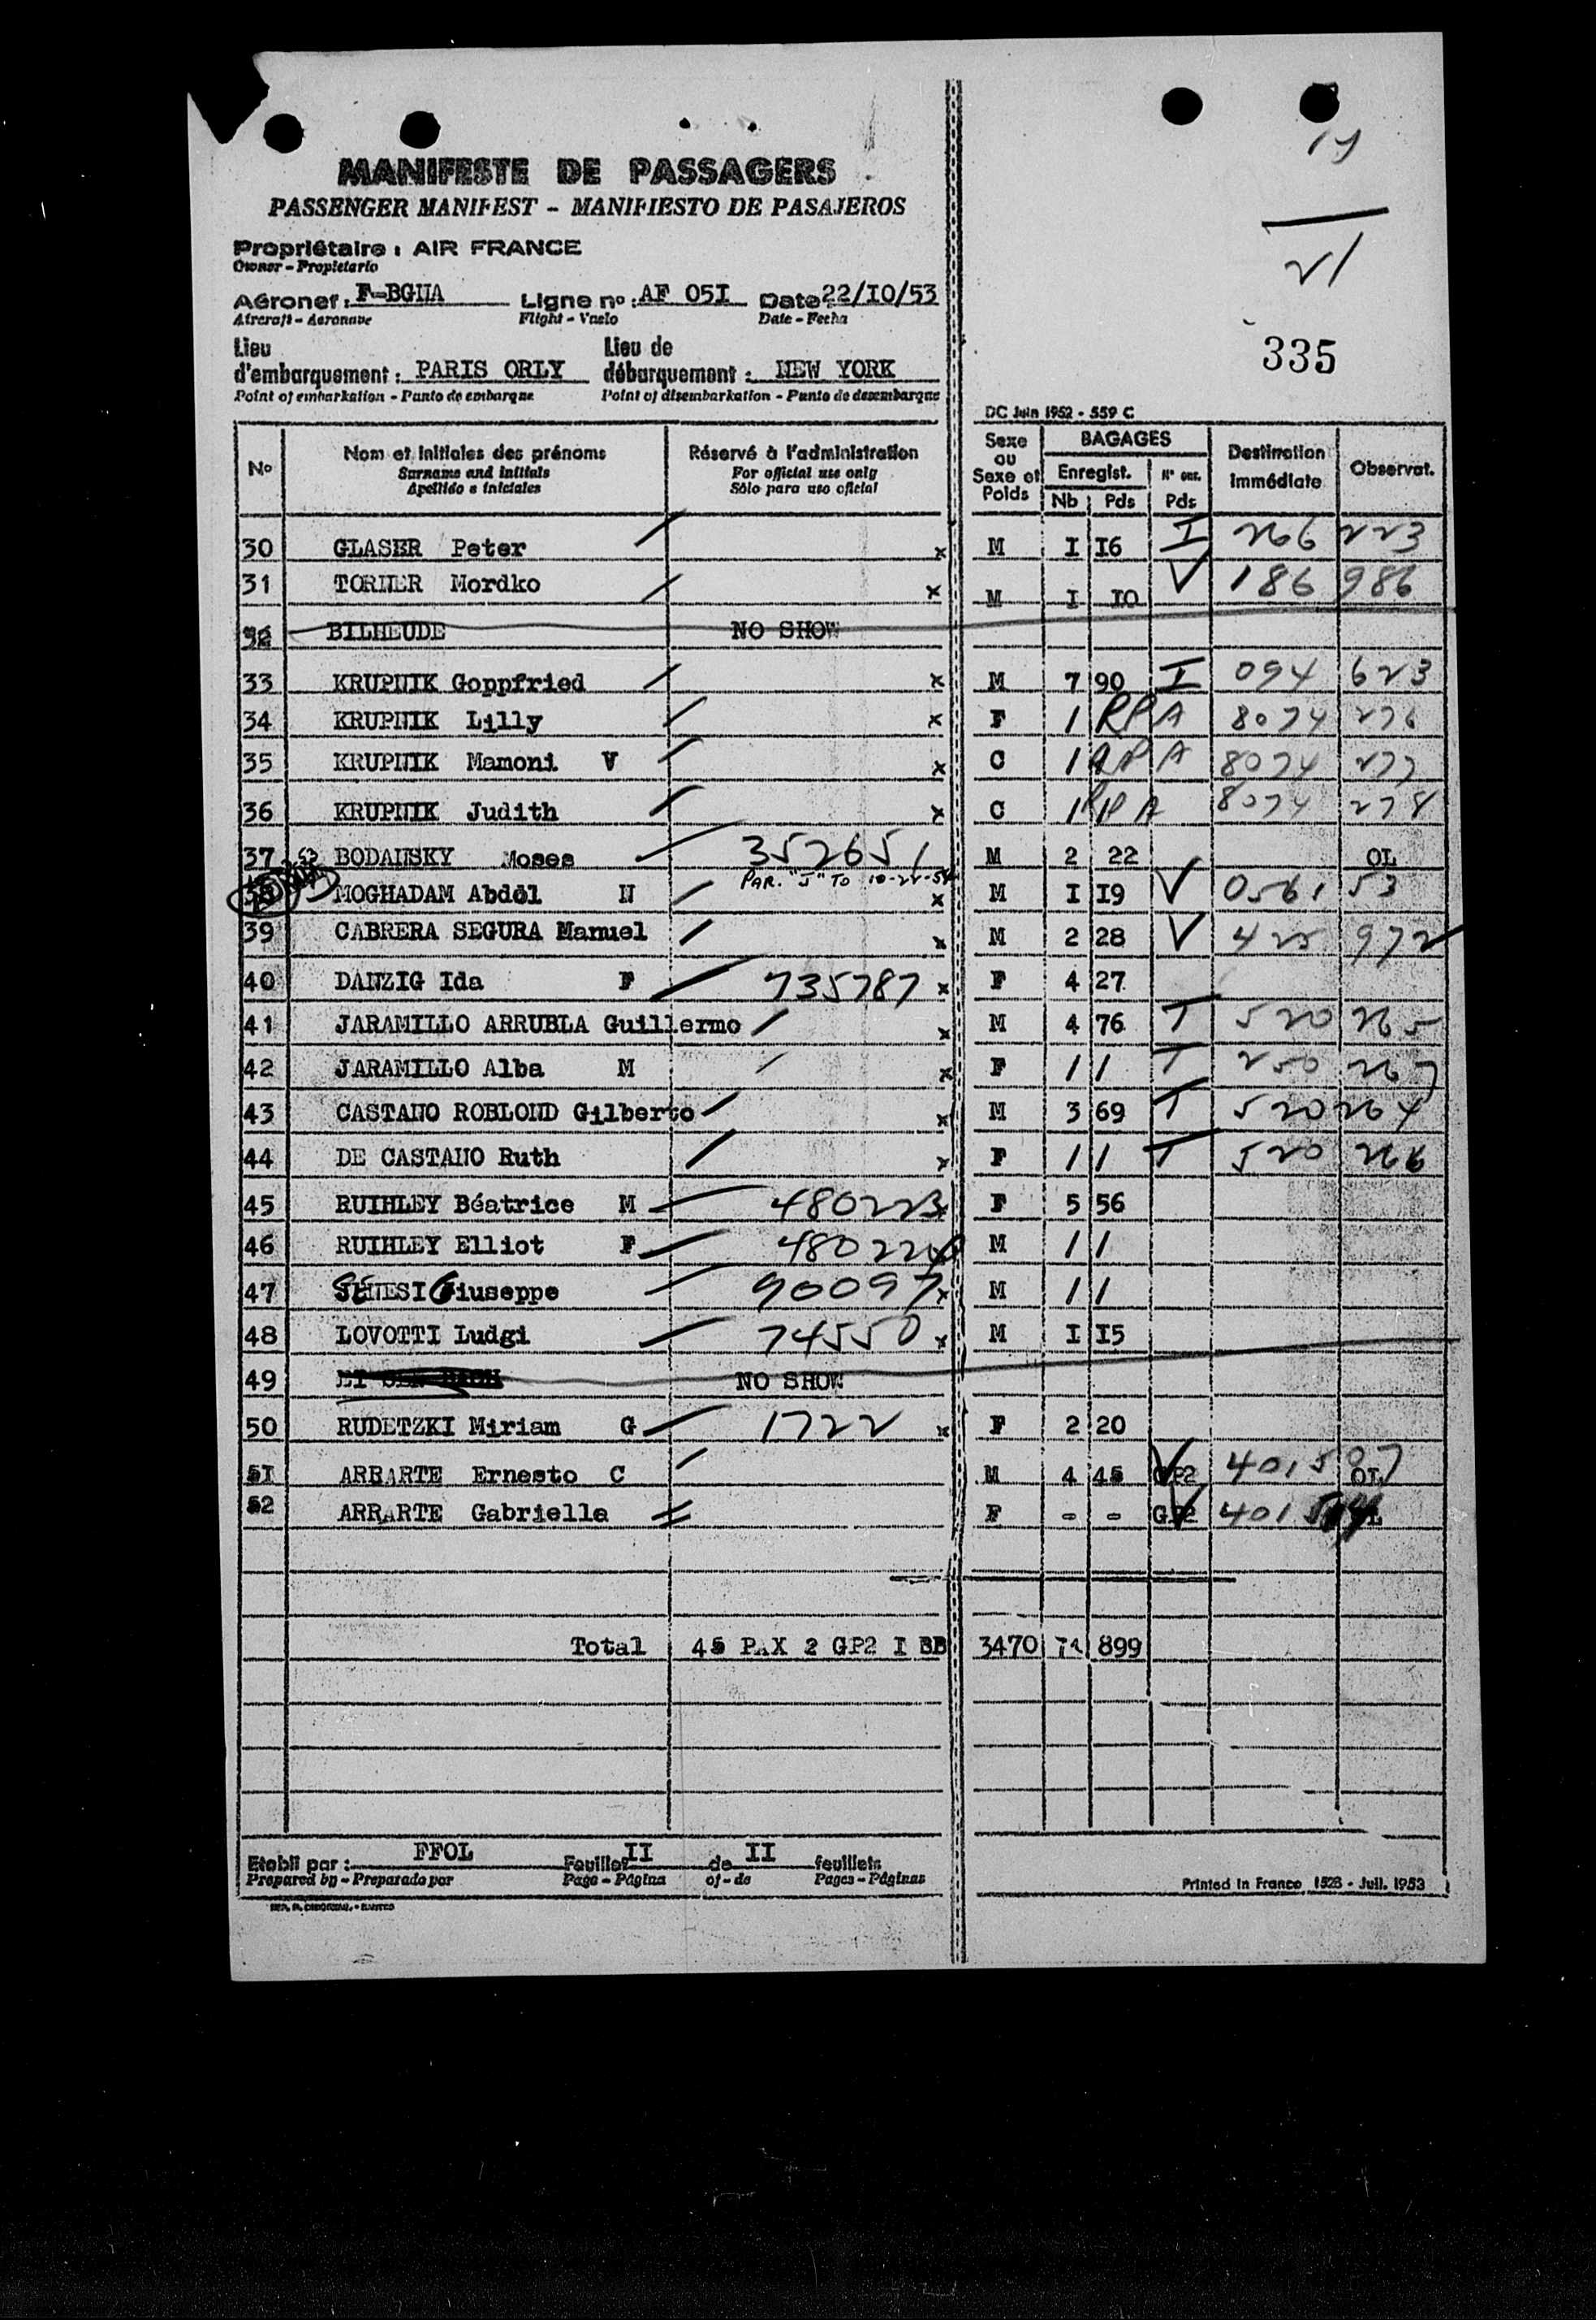 19
21
335
MANIFESTE DE PASSAGERS
PASSENGER MANIFEST - MANIFIESTO DE PASAJEROS
Propriétaire : AIR FRANCE
Owner - Propietario
Aéronef : F-BGNA Ligne no : AF 05I Date 22/I0/53
Aircraft - Aeronave Flight - Vuelo Date - Fecha
Lieu d'embarquement : PARIS ORLY Lieu de débarquement : NEW YORK
Point of embarkation - Punto de embarque Point of disembarkation - Punto de desembarque
DC Juin 1952 - 559 C
No Nom et initiales des prénoms Réservé à l'administration Sexe ou Sexe et Poids BAGAGES Destination immédiate Observat.
Surname and initials For official use only Enregist. N° enr.
Apellido e iniciales Sólo para uso oficial Nb Pds Pds
30 GLASER Peter x M I I6 I 266 223
31 TORNER Mordko x M I I0 V 186 986
32 BILHEUDE NO SHOW
33 KRUPNIK Goppfried x M 7 90 I 094 623
34 KRUPNIK Lilly x F 1 RPA 8074 276
35 KRUPNIK Mamoni V x C 1 RPA 8074 277
36 KRUPNIK Judith x C 1 RPA 8074 278
37 BODANSKY Moses 352651 M 2 22 OL
PAR. "J" TO 10-22-54
MOGHADAM Abdol N x M I I9 V 0561 53
39 CABRERA SEGURA Manuel x M 2 28 V 425 972
40 DANZIG Ida F 735787 x F 4 27
41 JARAMILLO ARRUBLA Guillermo x M 4 76 T 520 265
42 JARAMILLO Alba M x F / / T 250 267
43 CASTANO ROBLOND Gilberto x M 3 69 T 520 264
44 DE CASTANO Ruth x F / / T 520 266
45 RUIHLEY Béatrice M 480223 x F 5 56
46 RUIHLEY Elliot F 480224 M / /
47 GENESI Giuseppe 90097 x M / /
48 LOVOTTI Ludgi 74550 x M I I5
49 NO SHOW
50 RUDETZKI Miriam G 1722 x F 2 20
5I ARRARTE Ernesto C M 4 45 GP2 401507 OL
52 ARRARTE Gabriella F - - GP2 401
Total 45 PAX 2 GP2 I BB 3470 74 899
Etabli par : FFOL Feuillet II de II feuillets
Prepared by - Preparado por Page - Página of - de Pages - Páginas
Printed in France 1528 - Juil. 1953